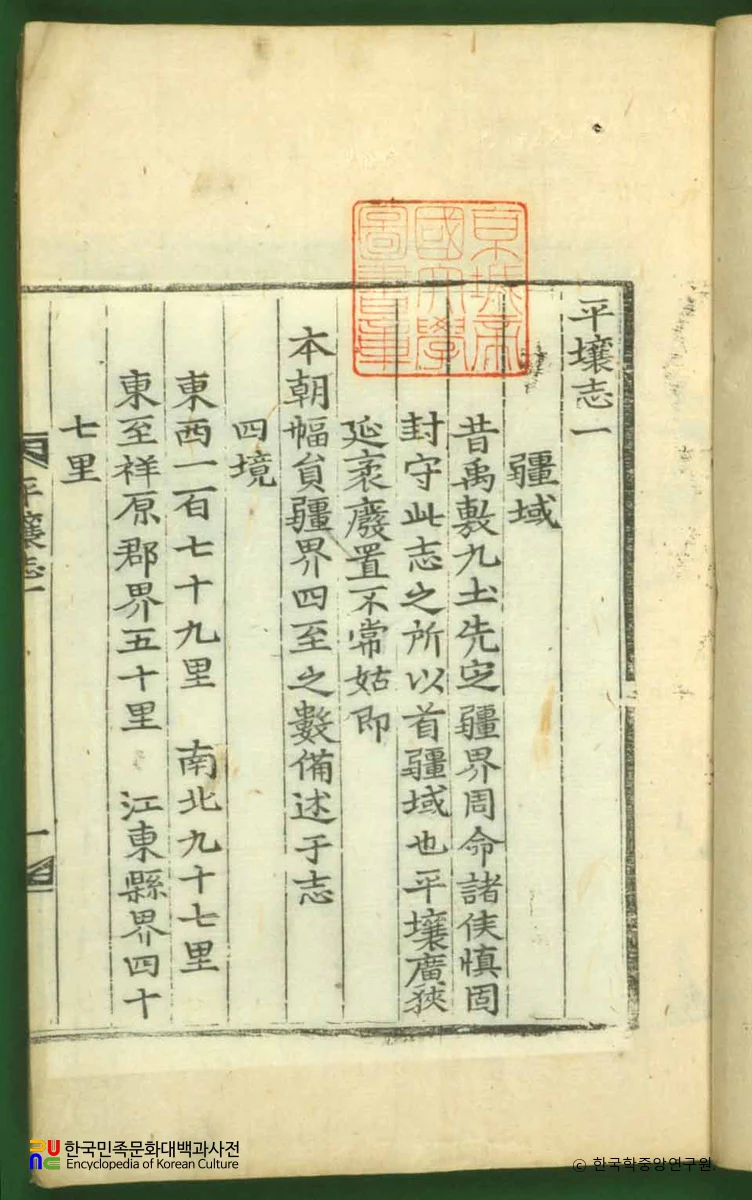 平壤志一
疆域
昔禹敷九土先定疆界周命諸侯愼固
封守此志之所以首疆域也平壤廣狹
延袤廢置不常姑即
本朝幅員疆界四至之數備述于志
四境
東西一百七十九里 南北九十七里
東至祥原郡界五十里 江東縣界四十
七里
平壤志一
一
京城帝
國大學
圖書章
한국민족문화대백과사전
Encyclopedia of Korean Culture
© 한국학중앙연구원